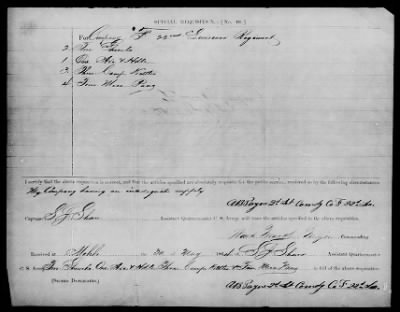 SPECIAL REQUISITION.—[No. 40.]
For Company "F" 22nd Louisiana Regiment
2 Two
1 One Axe & Helve
3 Three Camp Kettles
4 Four Mess Pans
I certify that the above requisition is correct, and that the articles specified are absolutely requisite for the public service, rendered so by the following circumstances:
My Company having an inadequate supply
2d Lt Comdg Co F 22d La
Captain Assistant Quartermaster C. S. Army, will issue the articles specified in the above requisition.
Commanding
Received at Mobile the of May of Assistant Quartermaster
C. S. Army, One Axe & Helve Three Camp Kettles & Four Mess Pans in full of the above requisition.
(SIGNED DUPLICATES.)
2d Lt Comdg Co F 22d La